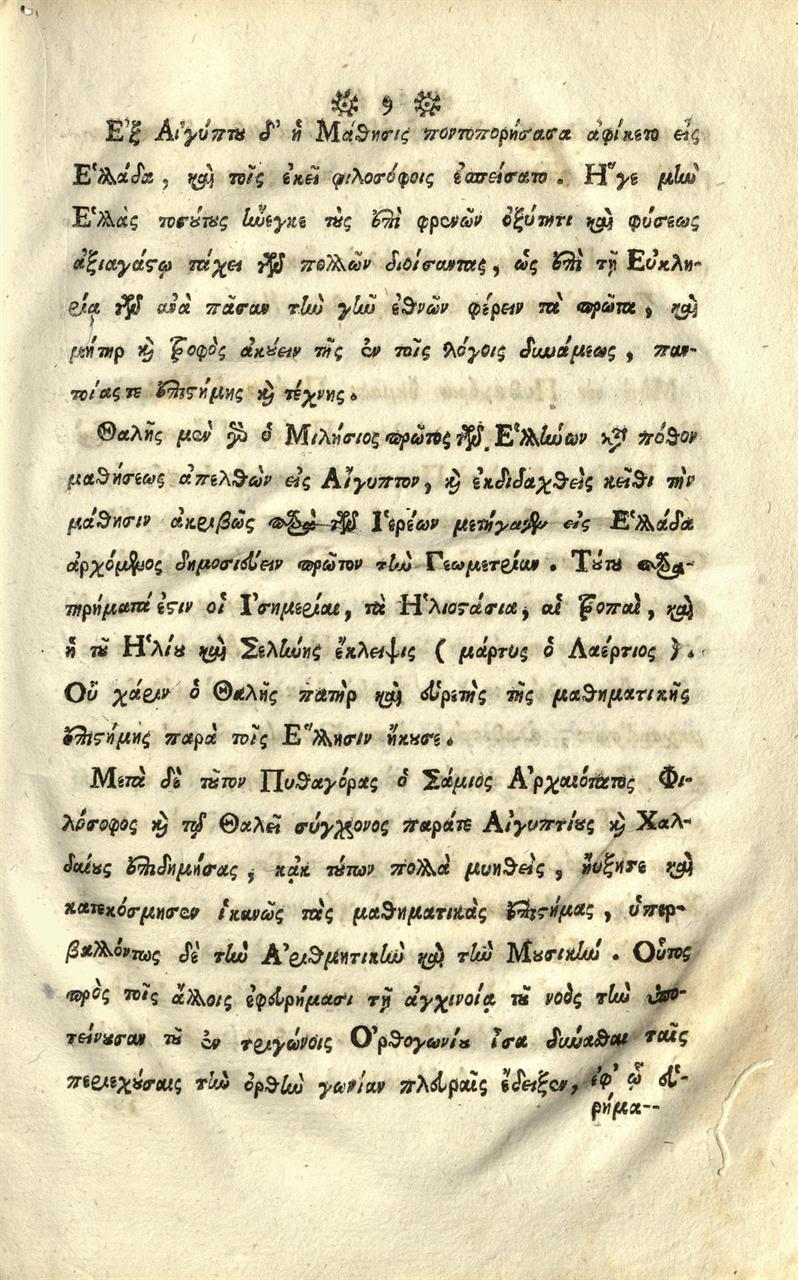 9
Ἐξ Αἰγύπτου δ' ἡ Μάθησις ποντοπορήσασα ἀφίκετο εἰς
Ἑλλάδα, καὶ τοῖς ἐκεῖ φιλοσόφοις ἐπείσατο. Ἥγε μὴν
Ἑλλὰς τοσούτους ἤνεγκε τοὺς ἐπὶ φρενῶν ὀξύτητι καὶ φύσεως
ἀξιαγάστῳ τάχει τῶν πολλῶν διοίσαντας, ὡς ἐπὶ τῇ Εὐκλη-
ρίᾳ τῶν ἀνὰ πᾶσαν τὴν γῆν ἐθνῶν φέρειν τὰ πρῶτα, καὶ
μήτηρ καὶ τροφὸς ἀκούειν τῆς ἐν τοῖς λόγοις δυνάμεως, παν-
τοίας τε ἐπιστήμης καὶ τέχνης.
Θαλῆς μὲν γὰρ ὁ Μιλήσιος πρῶτος τῶν Ἑλλήνων κατὰ πόθον
μαθήσεως ἀπελθὼν εἰς Αἴγυπτον, καὶ ἐκδιδαχθεὶς κεῖθι τὴν
μάθησιν ἀκριβῶς παρὰ τῶν Ἱερέων μετήγαγεν εἰς Ἑλλάδα
ἀρχόμενος δημοσιεύειν πρῶτον τὴν Γεωμετρίαν. Τούτου παρα-
τηρήματά ἐστιν οἱ Ἰσημερίαι, τὰ Ἡλιοστάσια, αἱ τροπαὶ, καὶ
ἡ τοῦ Ἡλίου καὶ Σελήνης ἔκλειψις ( μάρτυς ὁ Λαέρτιος ).
Οὗ χάριν ὁ Θαλῆς πατὴρ καὶ εὑρετὴς τῆς μαθηματικῆς
ἐπιστήμης παρὰ τοῖς Ἕλλησιν ἤκουσε.
Μετὰ δὲ τοῦτον Πυθαγόρας ὁ Σάμιος Ἀρχαιότατος Φι-
λόσοφος καὶ τῷ Θαλεῖ σύγχρονος παράτε Αἰγυπτίους καὶ Χαλ-
δαίους ἐπιδημήσας, κἀκ τούτων πολλὰ μυηθεὶς, ηὔξησε καὶ
κατεκόσμησεν ἱκανῶς τὰς μαθηματικὰς ἐπιστήμας, ὑπερ-
βαλλόντως δὲ τὴν Ἀριθμητικὴν καὶ τὴν Μουσικήν. Οὗτος
πρὸς τοῖς ἄλλοις ἐφευρήμασι τῇ ἀγχινοίᾳ τοῦ νοὸς τὴν ὑπο-
τείνουσαν τοῦ ἐν τριγώνοις Ὀρθογωνίου ἴσα δύνασθαι ταῖς
περιεχούσαις τὴν ὀρθὴν γωνίαν πλευραῖς ἔδειξεν, ἐφ' ᾧ εὑ-
ρήμα--